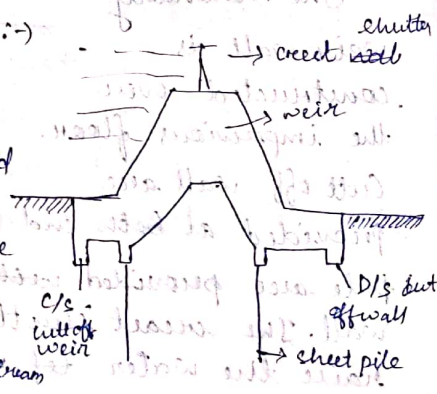 :-)
chutter
→ creest
→ weir
d
e
C/s
cuttoff
weir
D/s cut
offwall
→ sheet pile
ream